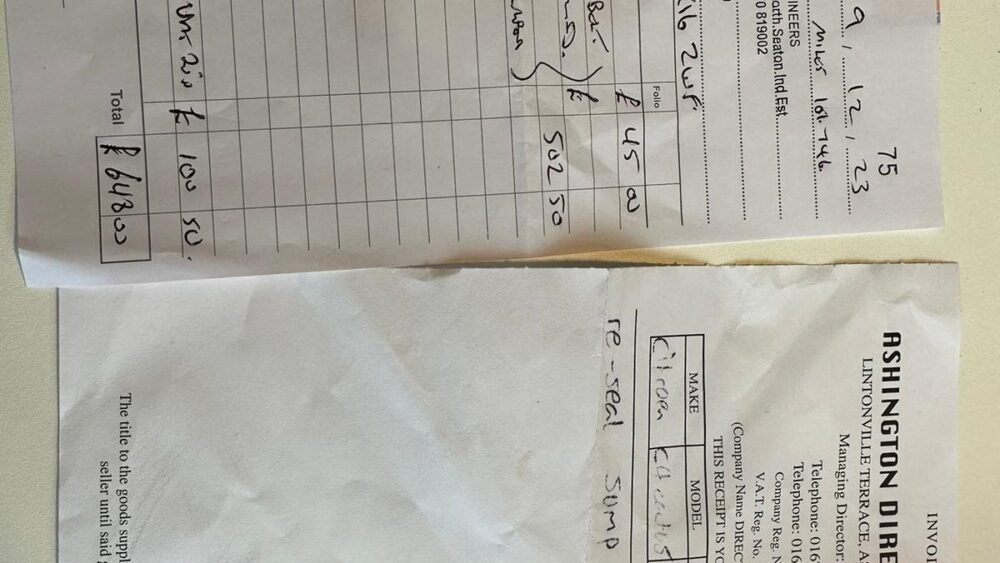 75
9 / 12 / 23
Miles 101.746
INEERS
orth.Seaton.Ind.Est
0 819002
Folio
£ 45 00
£ 502 50
£ 100 50.
Total £ 648 00
INVOI
ASHINGTON DIRE
LINTONVILLE TERRACE, A
Managing Director:
Telephone: 016
Telephone: 016
Company Reg. N
V.A.T. Reg. No.
(Company Name DIREC
THIS RECEIPT IS YO
MAKE MODEL
Citroen C4 cactus
re-seal sump
The title to the goods suppl
seller until said g